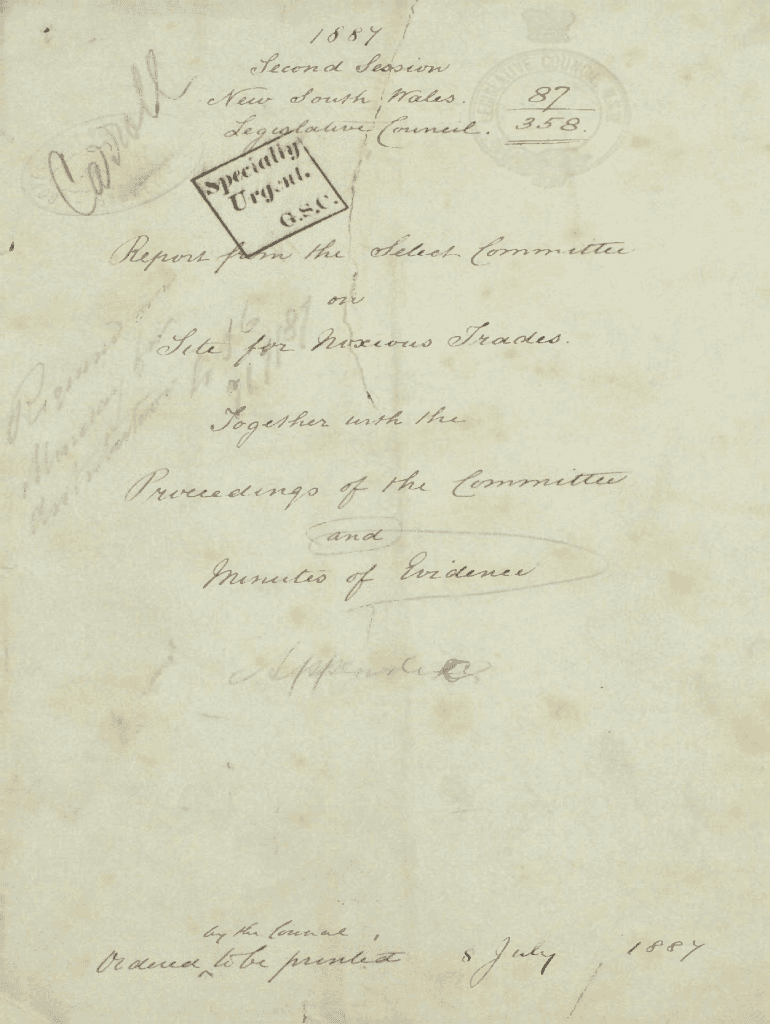 1887
Second Session
New South Wales.
Legislative Council.
87
358.
Carroll
Specially
Urgent.
G.S.C.
Report from the Select Committee
on
Site for Noxious Trades.
Together with the
Proceedings of the Committee
and
Minutes of Evidence
Appendix
by the Council
Ordered ‸ to be printed 8 July 1887